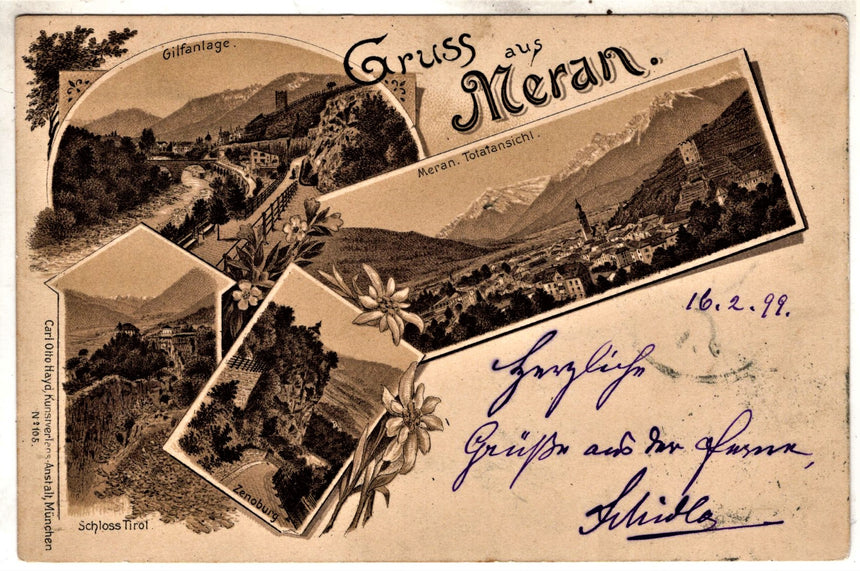 Gruss aus
Meran.
Gilfanlage.
Meran. Totalansicht.
16.2.99.
Herzliche
Grüße aus der Ferne,
Schloss Tirol
Zenoburg
Carl Otto Hayd, Kunstverlags-Anstalt, München
Nº 105.